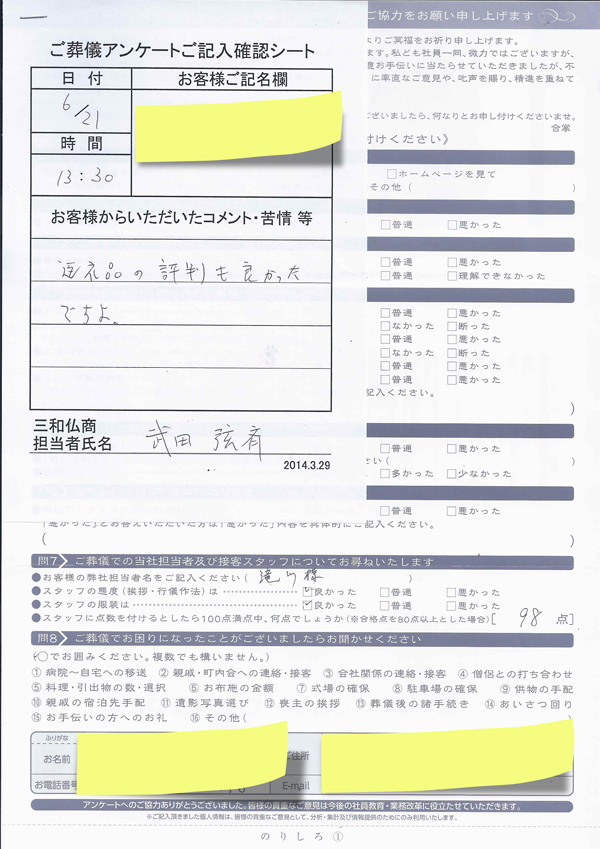 ご協力をお願い申し上げます
ご葬儀アンケートご記入確認シート
日 付
お客様ご記名欄
6/21
時 間
13:30
お客様からいただいたコメント・苦情 等
返礼品の評判も良かった
ですよ。
三和仏商
担当者氏名
武田
2014.3.29
よりご冥福をお祈り申し上げます。
ます。私ども社員一同、微力ではございますが、
お手伝いに当たらせていただきましたが、不
に率直なご意見や、叱声を賜り、精進を重ねて
ございましたら、何なりとお申し付けくださいませ。
合掌
付けください》
□ホームページを見て
その他( )
□普通 □悪かった
□普通 □悪かった
□普通 □理解できなかった
□普通 □悪かった
□なかった □断った
□普通 □悪かった
□なかった □断った
□普通 □悪かった
□普通 □悪かった
記入ください。
)
□普通 □悪かった
さい(
□多かった □少なかった
□普通 □悪かった
「悪かった」とお答えいただいた方は「悪かった」内容を具体的にご記入ください。
( )
問7 ご葬儀での当社担当者及び接客スタッフについてお尋ねいたします
●お客様の弊社担当者名をご記入ください( 滝川様 )
●スタッフの態度(挨拶・行儀作法)は ☑良かった □普通 □悪かった
●スタッフの服装は ☑良かった □普通 □悪かった
●スタッフに点数を付けるとしたら100点満点中、何点でしょうか(※合格点を80点以上とした場合)[ 98 点]
問8 ご葬儀でお困りになったことがございましたらお聞かせください
(○でお囲みください。複数でも構いません。)
①病院〜自宅への移送 ②親戚・町内会への連絡・接客 ③会社関係の連絡・接客 ④僧侶との打ち合わせ
⑤料理・引出物の数・選択 ⑥お布施の金額 ⑦式場の確保 ⑧駐車場の確保 ⑨供物の手配
⑩親戚の宿泊先手配 ⑪遺影写真選び ⑫喪主の挨拶 ⑬葬儀後の諸手続き ⑭あいさつ回り
⑮お手伝いの方へのお礼 ⑯その他( )
ふりがな
お名前
ご住所
お電話番号
E-mail
アンケートへのご協力ありがとうございました。皆様の貴重なご意見は今後の社員教育・業務改革に役立たせていただきます。
※ご記入頂きました個人情報は、皆様の貴重なご意見として、分析・集計及び情報提供のためにのみ利用いたします。
のりしろ①